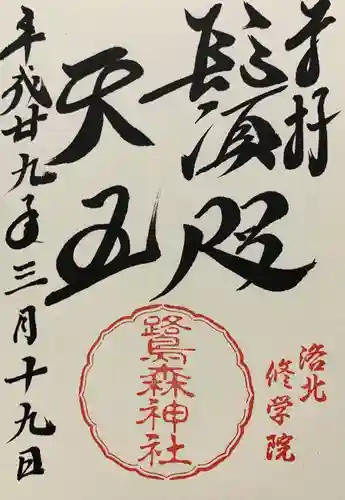 奉拝
鬚咫
天王
平成廿九年三月十九日
洛北
修学院
鷺森神社